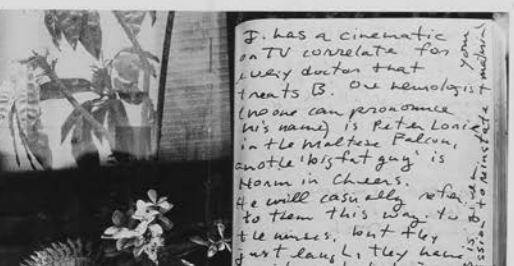 J. has a cinematic
or TV correlate for
every doctor that
treats B. One neurologist
(no one can pronounce
his name) is Peter Lorre
in the Maltese Falcon,
another 'big fat guy' is
Norm in Cheers.
He will casually refer
to them this way to
the nurses, but they
just laugh, they have
to reinstate